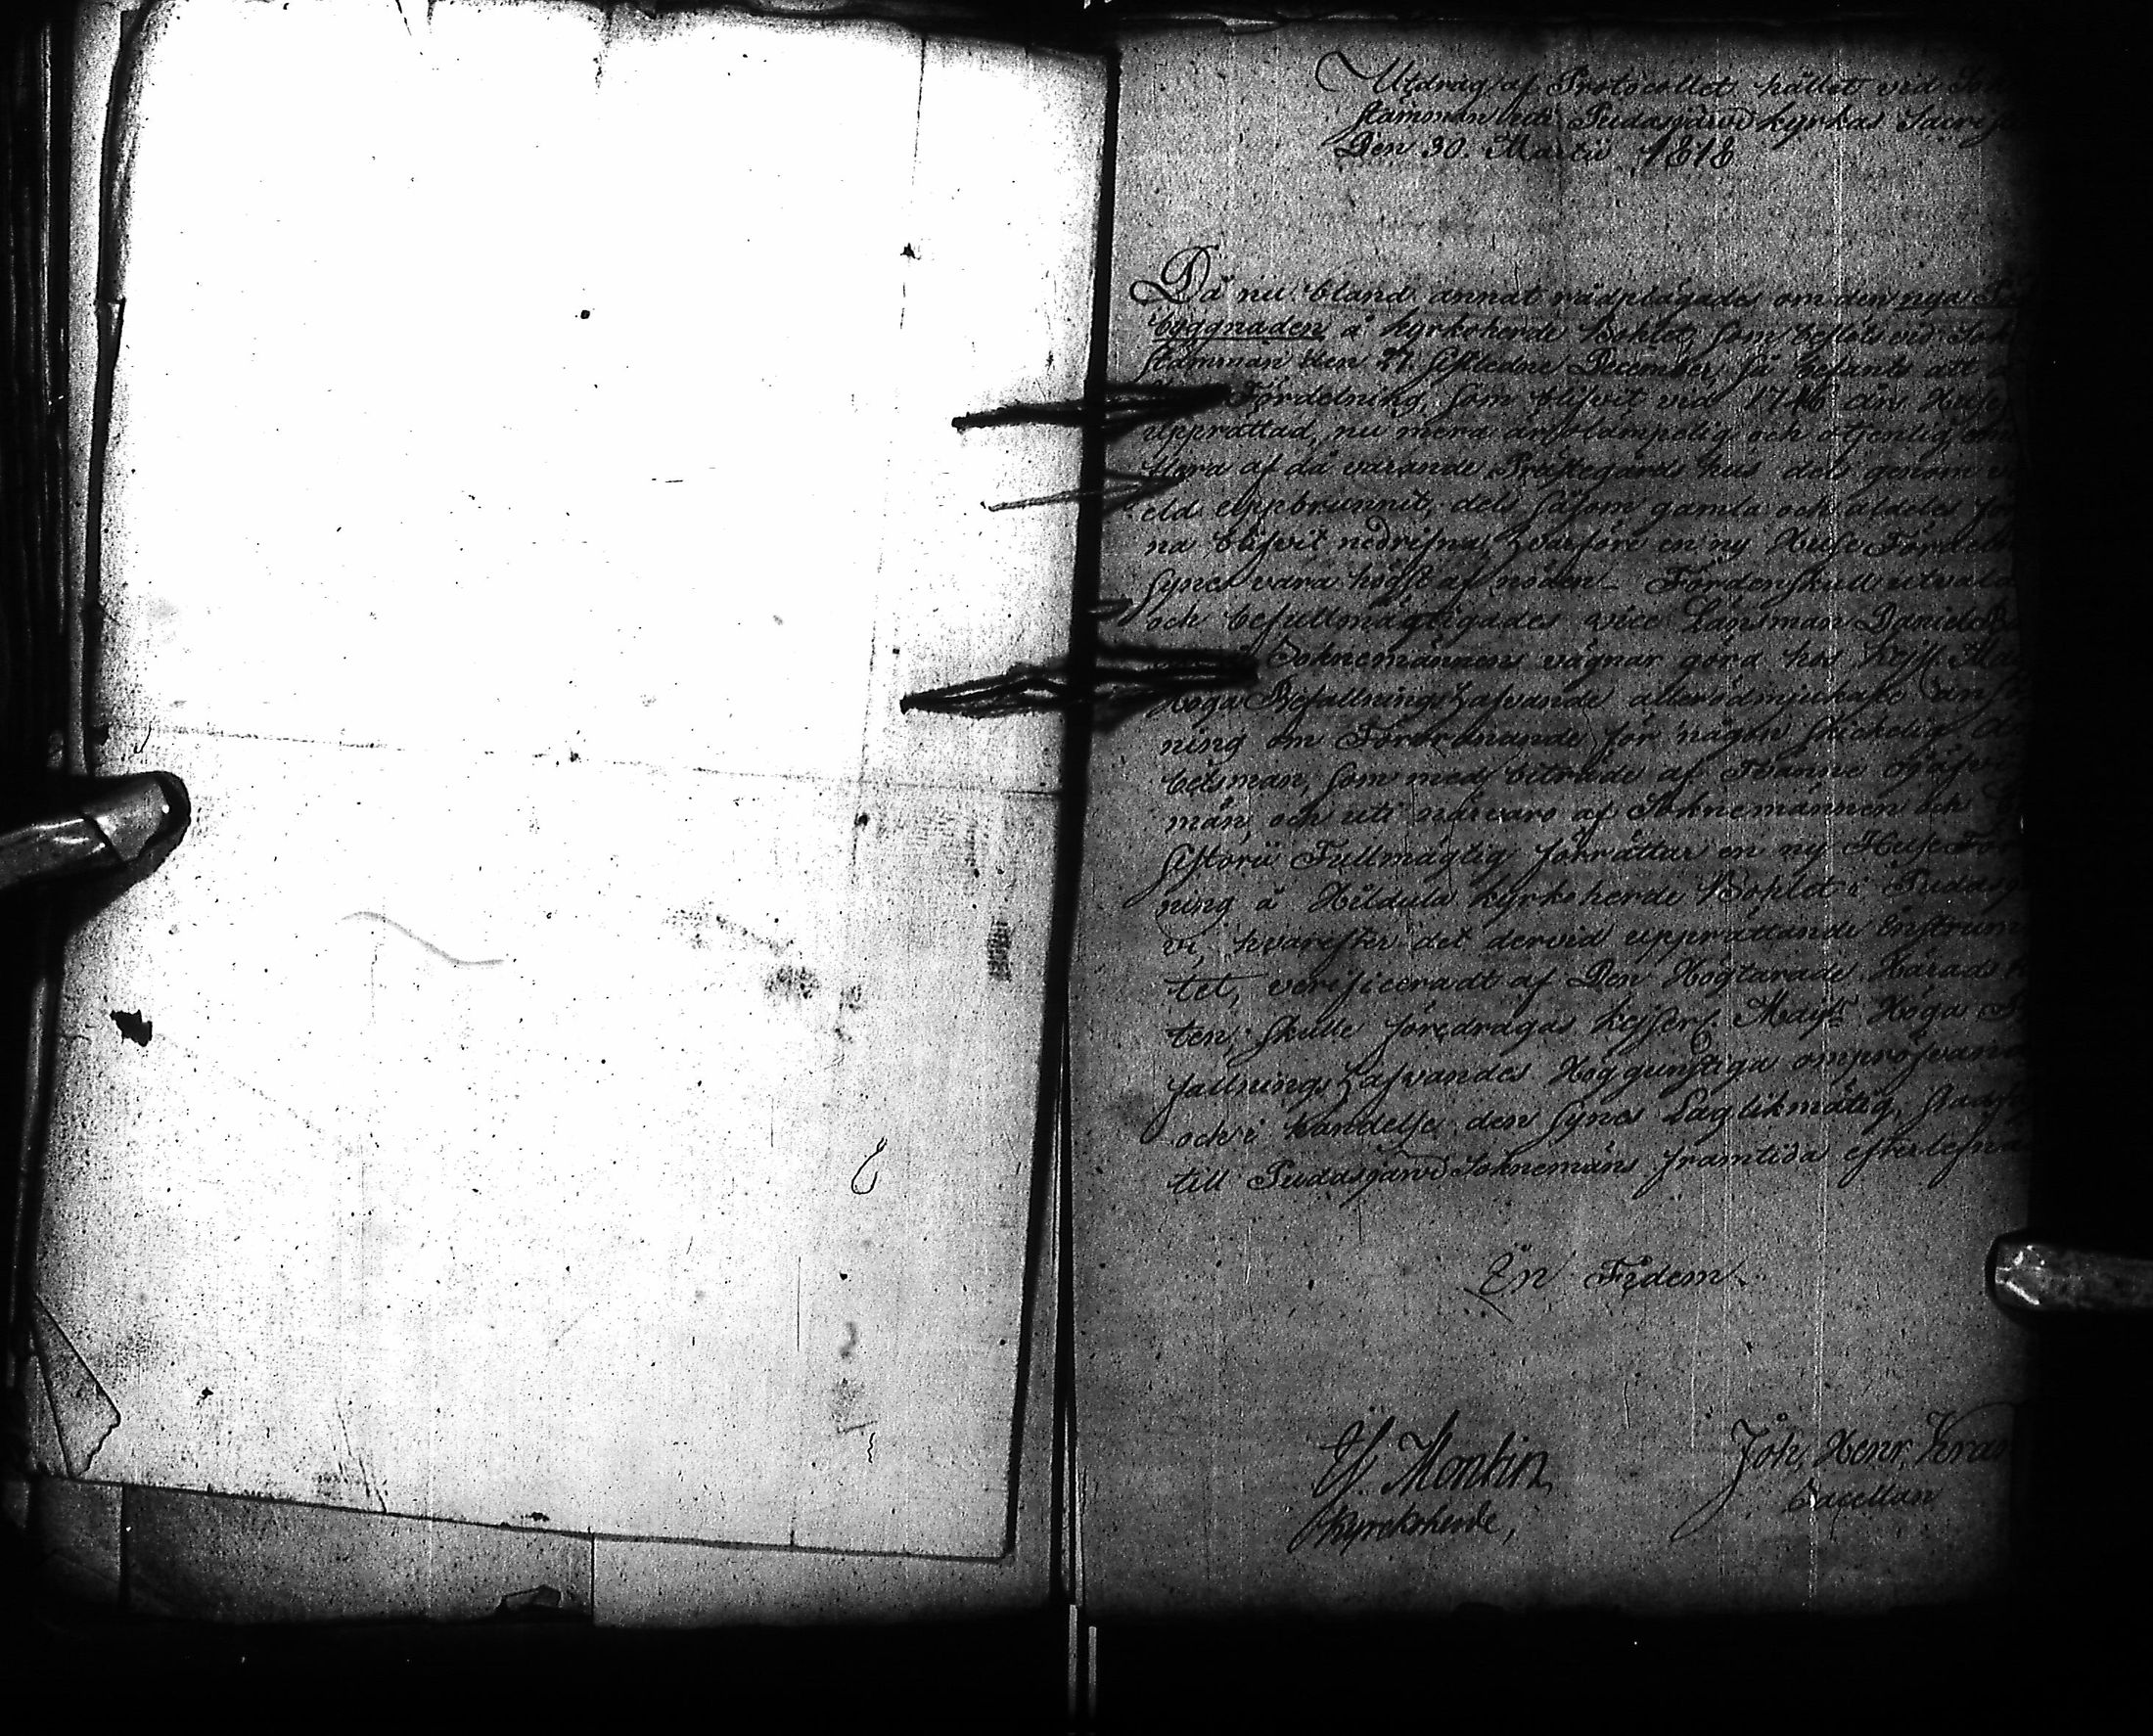 Utdrag af Protocollet hållet vid
stämman uti Pudasjärvi kyrkas Sacri
Den 30. Martii 1818
Då nu bland annat rådplägades om den nya
byggnaden å kyrkoherde Bohlet, som beslöts vid Sok
stämman den 27. sistledne December, så befants att
Fördelning, som blifvit vid 1746 års Husesy
upprättad, nu mera är olämpelig och otjenlig
flera af då varande Prästegårds hus dels genom
eld uppbrunnit, dels såsom gamla och aldeles för
na blifvit nedrifna, hvarföre en ny Huse Fördeln
synes vara högst af nöden. Fördenskull utvald
och befullmägtigades vice Länsman Daniel
Soknemännens vägnar göra hos Kejs. Ma
Höga Befallningshafvande allerödmjukaste ansö
ning om Förordnande för någon skickelig
betsman, som med biträde af Tvänne ojäfvi
män, och uti närvaro af Soknemännen och
sistorii Fullmägtig förrättar en ny Huse För
ning å Hildula kyrkoherde Bohlet i Pudasjär
vi, hvarefter det dervid upprättande Instrum
tet, verificeradt af Den Högtärade Härads R
ten, skulle föredragas Kejserl. Maijts Höga
fallningshafvandes Höggunstiga ompröfvand
och i händelse den synes Laglikmätig, stadfä
till Pudasjärvi Soknemäns framtida efterlefna
In Fidem
Montin
Kyrckoherde,
Joh. Henr.
Capellan